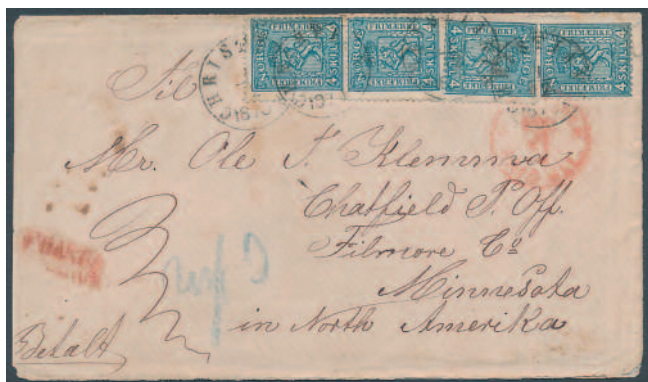 NORGE FRIMÆRKE 4 SKILL.
NORGE FRIMÆRKE 4 SKILL.
NORGE FRIMÆRKE 4 SKILL.
NORGE FRIMÆRKE 4 SKILL.
CHRIS
Til
Mr. Ole T. Klemmva
Chatfield P. Off.
Filmore Co
Minnesota
in North Amerika
Betalt